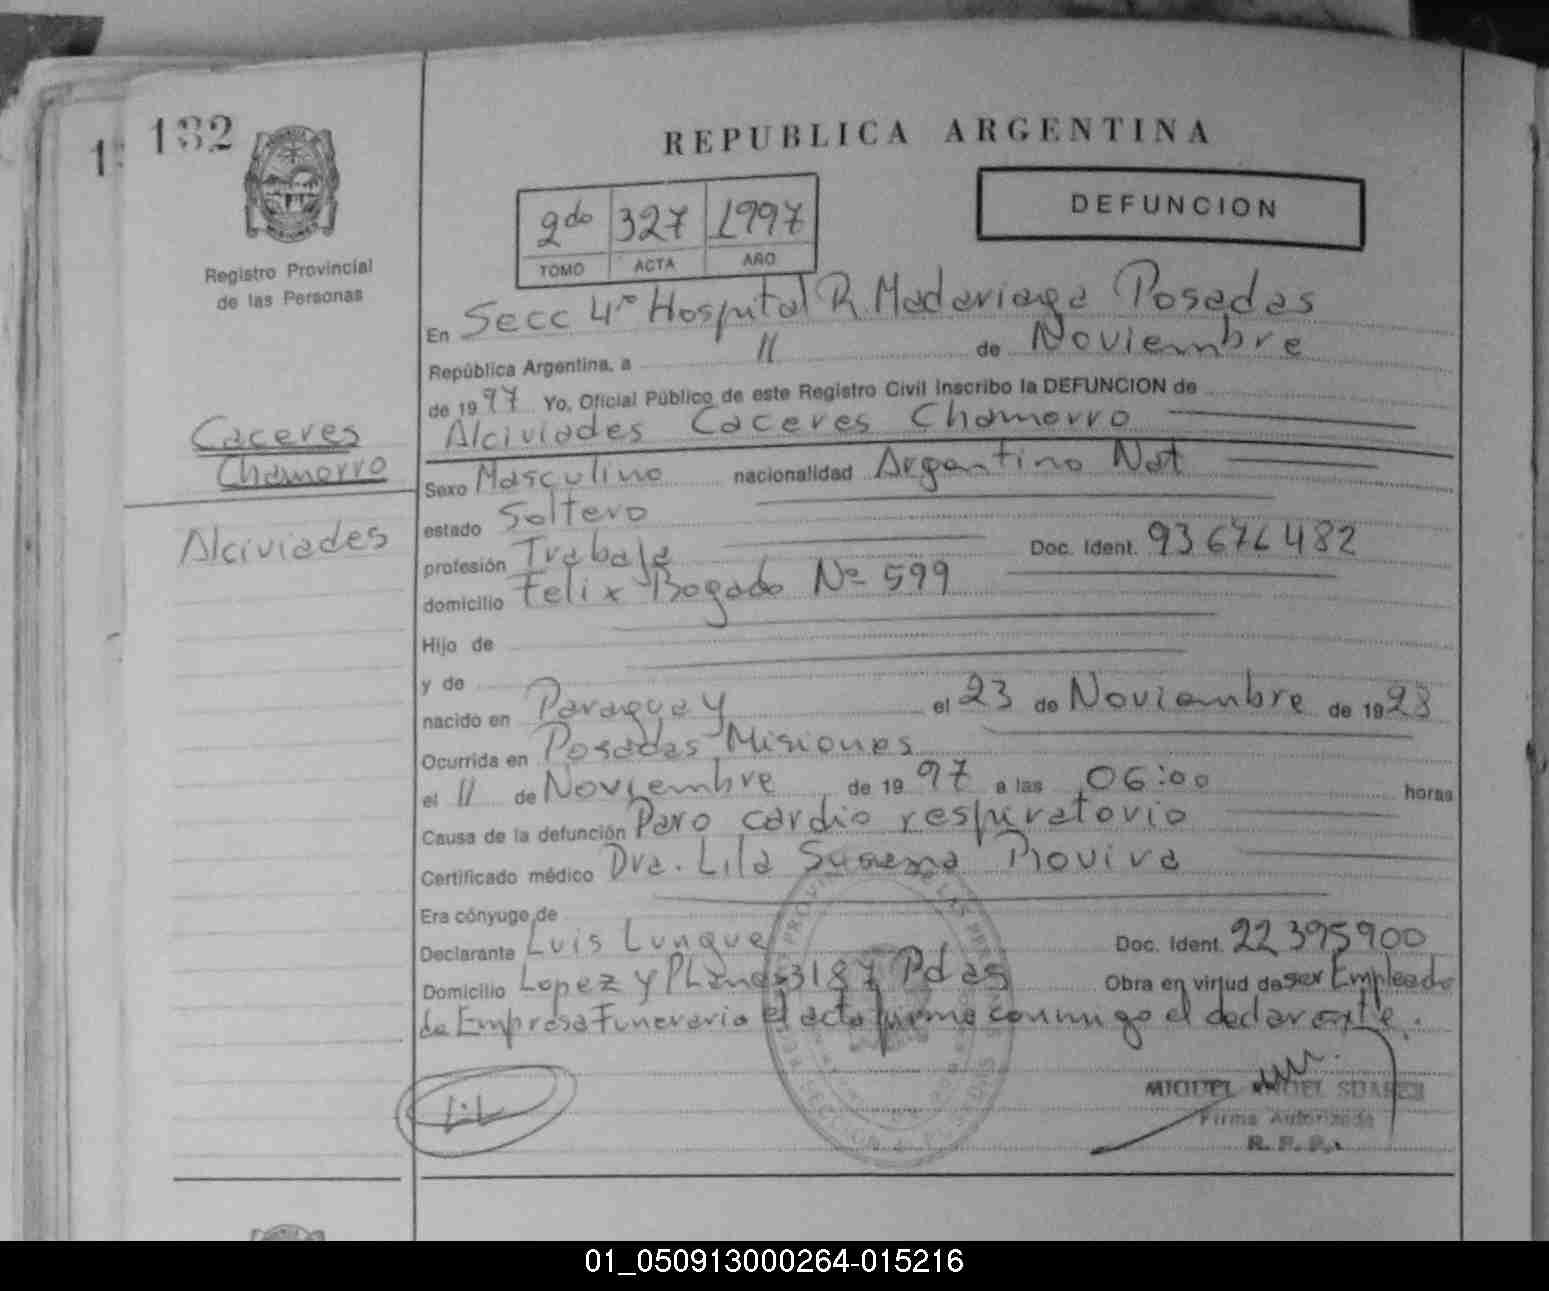 132
REPUBLICA ARGENTINA
DEFUNCION
2do 327 1997
TOMO ACTA AÑO
Registro Provincial
de las Personas
En Secc 4ta Hospital R. Madariaga Posadas
República Argentina, a 11 de Noviembre
de 1997 Yo, Oficial Público de este Registro Civil inscribo la DEFUNCION de
Alciviades Caceres Chamorro
Caceres
Chamorro
Alciviades
Sexo Masculino nacionalidad Argentino Nat
estado Soltero
profesión Trabaja Doc. Ident. 93676482
domicilio Felix Bogado Nº 599
Hijo de
y de
nacido en Paraguay el 23 de Noviembre de 1923
Ocurrida en Posadas Misiones
el 11 de Noviembre de 1997 a las 06:00 horas
Causa de la defunción Paro cardio respiratorio
Certificado médico Dra. Lila Susana
Era cónyuge de
Declarante Luis Lunque Doc. Ident. 22395900
Domicilio Lopez y Planes 3187 Pdas Obra en virtud de ser Empleado
de Empresa Funeraria el acta firma conmigo el declarante.
MIGUEL ANGEL SUAREZ
Firma Autorizada
R. P. P.
01_050913000264-015216